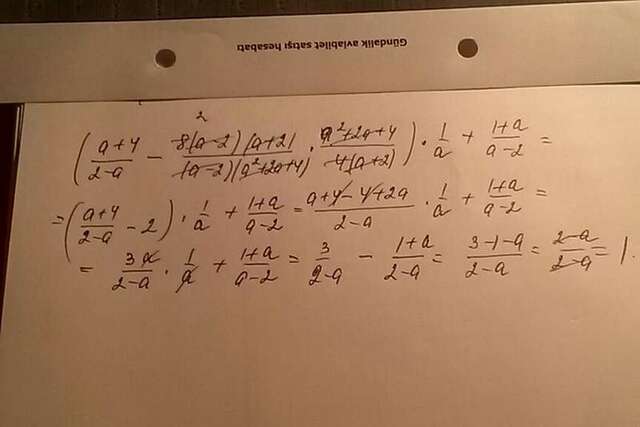 Gündəlik aviabilet satışı hesabatı
2
(a+4/2-a - 8(a-2)(a+2)/(a-2)(a²+2a+4) · a²+2a+4/4(a+2)) · 1/a + 1+a/a-2 =
= (a+4/2-a - 2) · 1/a + 1+a/a-2 = a+4-4+2a/2-a · 1/a + 1+a/a-2 =
= 3a/2-a · 1/a + 1+a/a-2 = 3/2-a - 1+a/2-a = 3-1-a/2-a = 2-a/2-a = 1.